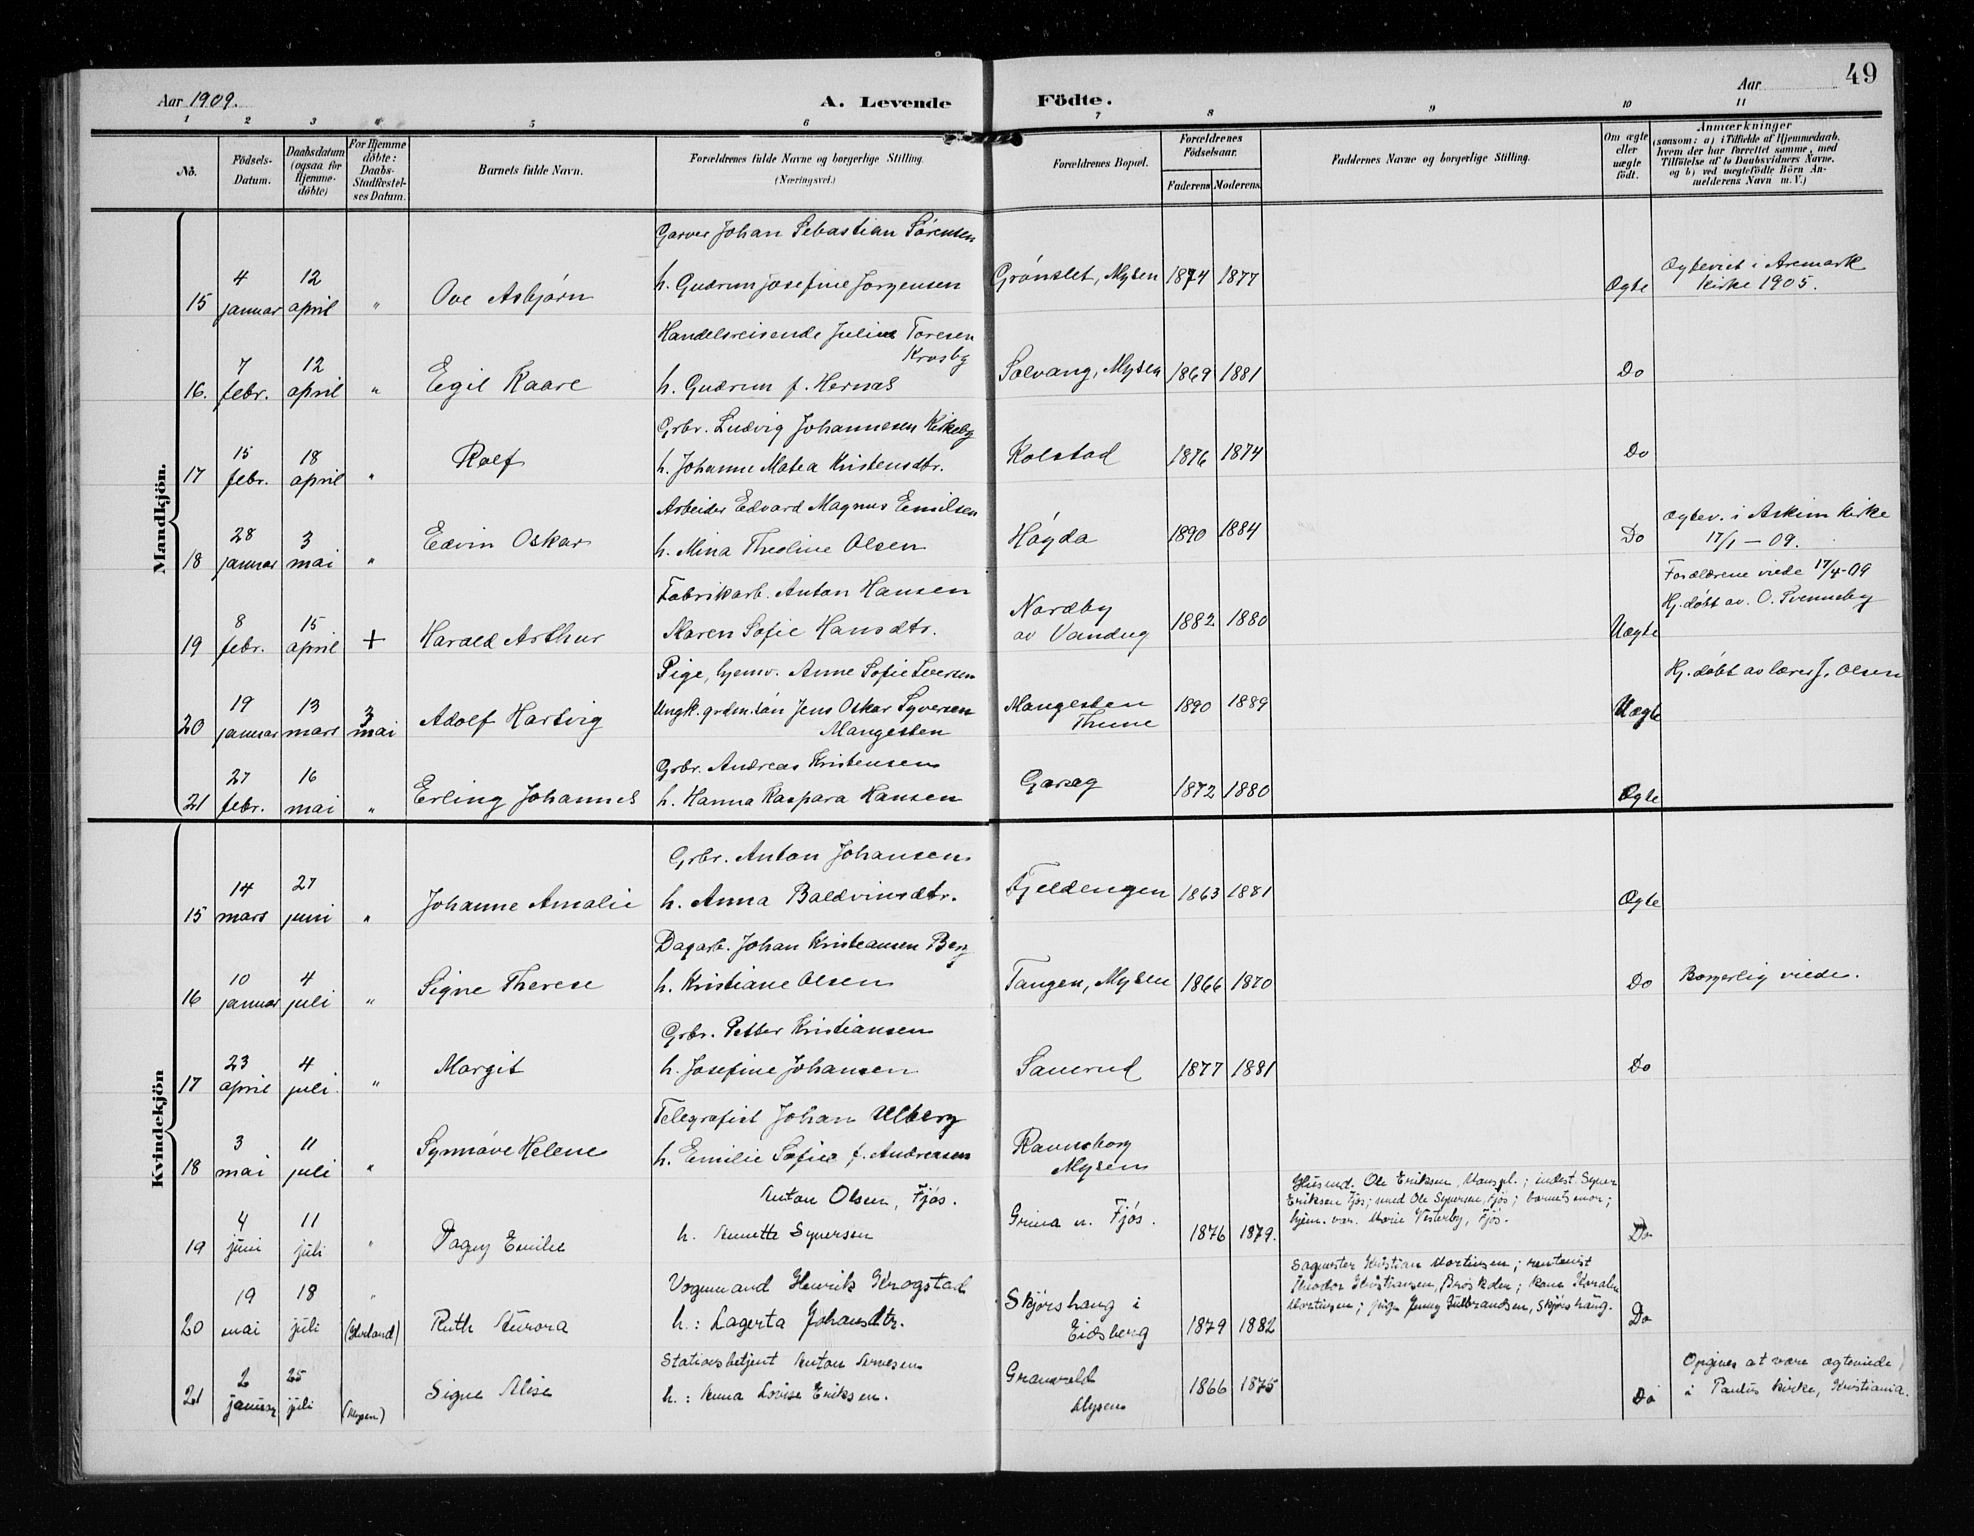 49
Aar 1909.
A. Levende
Födte.
Aar
1 2 3 4 5 6 7 8 9 10 11
No.
Födsels-
Datum.
Daabsdatum
(ogsaa for
Hjemme-
döbte)
For Hjemme
döbte:
Daabs-
Stadfæstel-
ses Datum.
Barnets fulde Navn.
Forældrenes fulde Navne og borgerlige Stilling.
(Næringsvei.)
Forældrenes Bopæl.
Forældrenes
Födselsaar.
Faderens
Moderens.
Faddernes Navne og borgerlige Stilling.
Om ægte
eller
uægte
födt.
Anmærkninger
(saasom: a) i Tilfælde af Hjemmedaab,
hvem der har forrettet samme, med
Tilföielse af to Daabsvidners Navne.
og b) ved uægtefödte Börn An-
melderens Navn m. V.)
Mandkjön.
Garver Johan Sebastian Sørensen
15 4 januar 12 april " Ove Asbjørn h. Gudrun Josefine Jørgensen Grønslet, Mysen 1874 1877 Ægte Ægteviet i Aremark
Kirke 1905.
Handelsreisende Julius Toresen
Krosby
16. 7 febr. 12 april " Egil Kaare h. Gudrun f. Hernæs Solvang, Mysen 1869 1881 Do
Grbr. Ludvig Johannesen Kirkeby
17 15 febr. 18 april " Rolf h. Johanne Matea Kristensdtr. Kolstad 1876 1874 Do
Arbeider Edvard Magnus Emilsen
18 28 januar 3 mai " Edvin Oskar h. Mina Theoline Olsen Høgda 1890 1884 Do Ægtev. i Askim Kirke
17/1 - 09.
Fabrikarb. Anton Hansen
Forældrene viede 17/4-09
19 8 febr. 15 april + Harald Arthur Karen Sofie Hansdtr. Nordby
av 1882 1880 Uægte Hj. døbt av. O. Svenneby
Pige, hjemv. Anne Sofie Iversen
20 19 januar 13 mars 3 mai Adolf Hartvig Ungk. grdm. søn Jens Oskar Syversen
Mangesten
Mangesten
Thune 1890 1889 Uægte Hj. døbt av lærer J. Olsen
Grbr. Andreas Kristensen
21 27 febr. 16 mai " Erling Johannes h. Hanna Kaspara Hansen Garseg 1872 1880 Ægte
Kvindekjön
Grbr. Anton Johansen
15 14 mars 27 juni " Johanne Amalie h. Anna Baldvinsdtr. Fjeldengen 1863 1881 Ægte
Dagarb. Johan Kristiansen Berg
16 10 januar 4 juli " Signe Therese h. Kristiane Olsen Tangen, Mysen 1866 1870 Do Borgerlig viede.
Grbr. Petter Kristiansen
17 23 april 4 juli. " Margit h. Josefine Johansen Saue​rud 1877 1881 Do
Telegrafist Johan Ulberg
18 3 mai 11 juli " Synnøve Helene h. Emilie Sofie f. Andreasen Ravnsborg
Mysen
Anton Olsen, Fjøs.
19 4 juni 11 juli " Dagny Emilie h. Annette Syversen Grina u. Fjøs. 1876 1879. Husmd. Ole Eriksen, ; indest Syver
Eriksen Fjøs; umd Ole Syversen, Fjøs; barnets mor;
hjem. vær. Marie Vesterby, Fjøs.
Do
Vognmand Henrik Krogstad
20 19 mai 18 juli " Ruth Aurora h.: Lagerta Johansdtr. Skjørshaug i
Eidsberg 1879 1882 Sagmester Kristian Martinsen; rentenist
Teodor Kristiansen, ; kone
Martinsen; pige Jenny Gulbrandsen, Skjørshaug.
Do
Stationsbetjent Anton Arnesen
21 2 januar 25 juli (Mysen) Signe Alise h.: Anna Lovise Eriksen. Granvold
Mysen 1866 1875 Do Opgives at være ægteviede
i Paulus kirke, Kristiania.